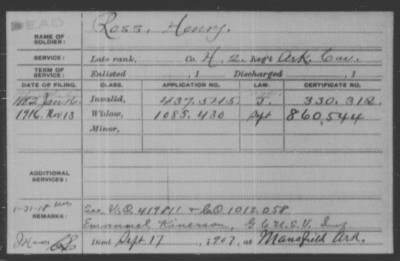 DEAD
NAME OF SOLDIER: Ross, Henry.
SERVICE: Late rank, Co. H, 2 Reg't Ark. Cav.
TERM OF SERVICE: Enlisted , 1 Discharged , 1
DATE OF FILING. CLASS. APPLICATION NO. LAW. CERTIFICATE NO.
Jan 16 Invalid, 330,312
1916, Nov 13 Widow, 1085,430 Sept 860,544
Minor,
ADDITIONAL SERVICES:
1-31-18
REMARKS: See 419811 + 1012,058
Emanuel
Died Sept 17, 1907, at Mansfield Ark.